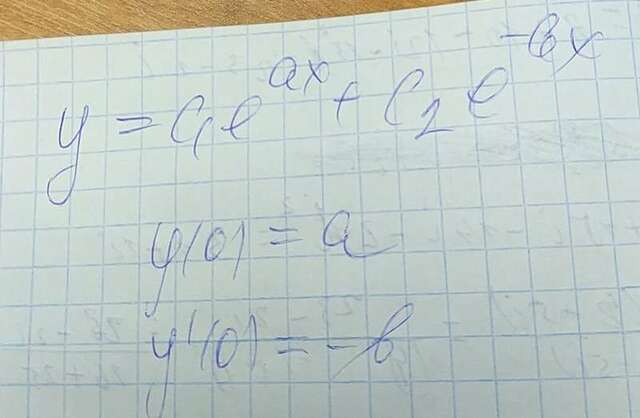 y = C₁e^{ax} + C₂e^{-bx}
y(0) = a
y'(0) = -b